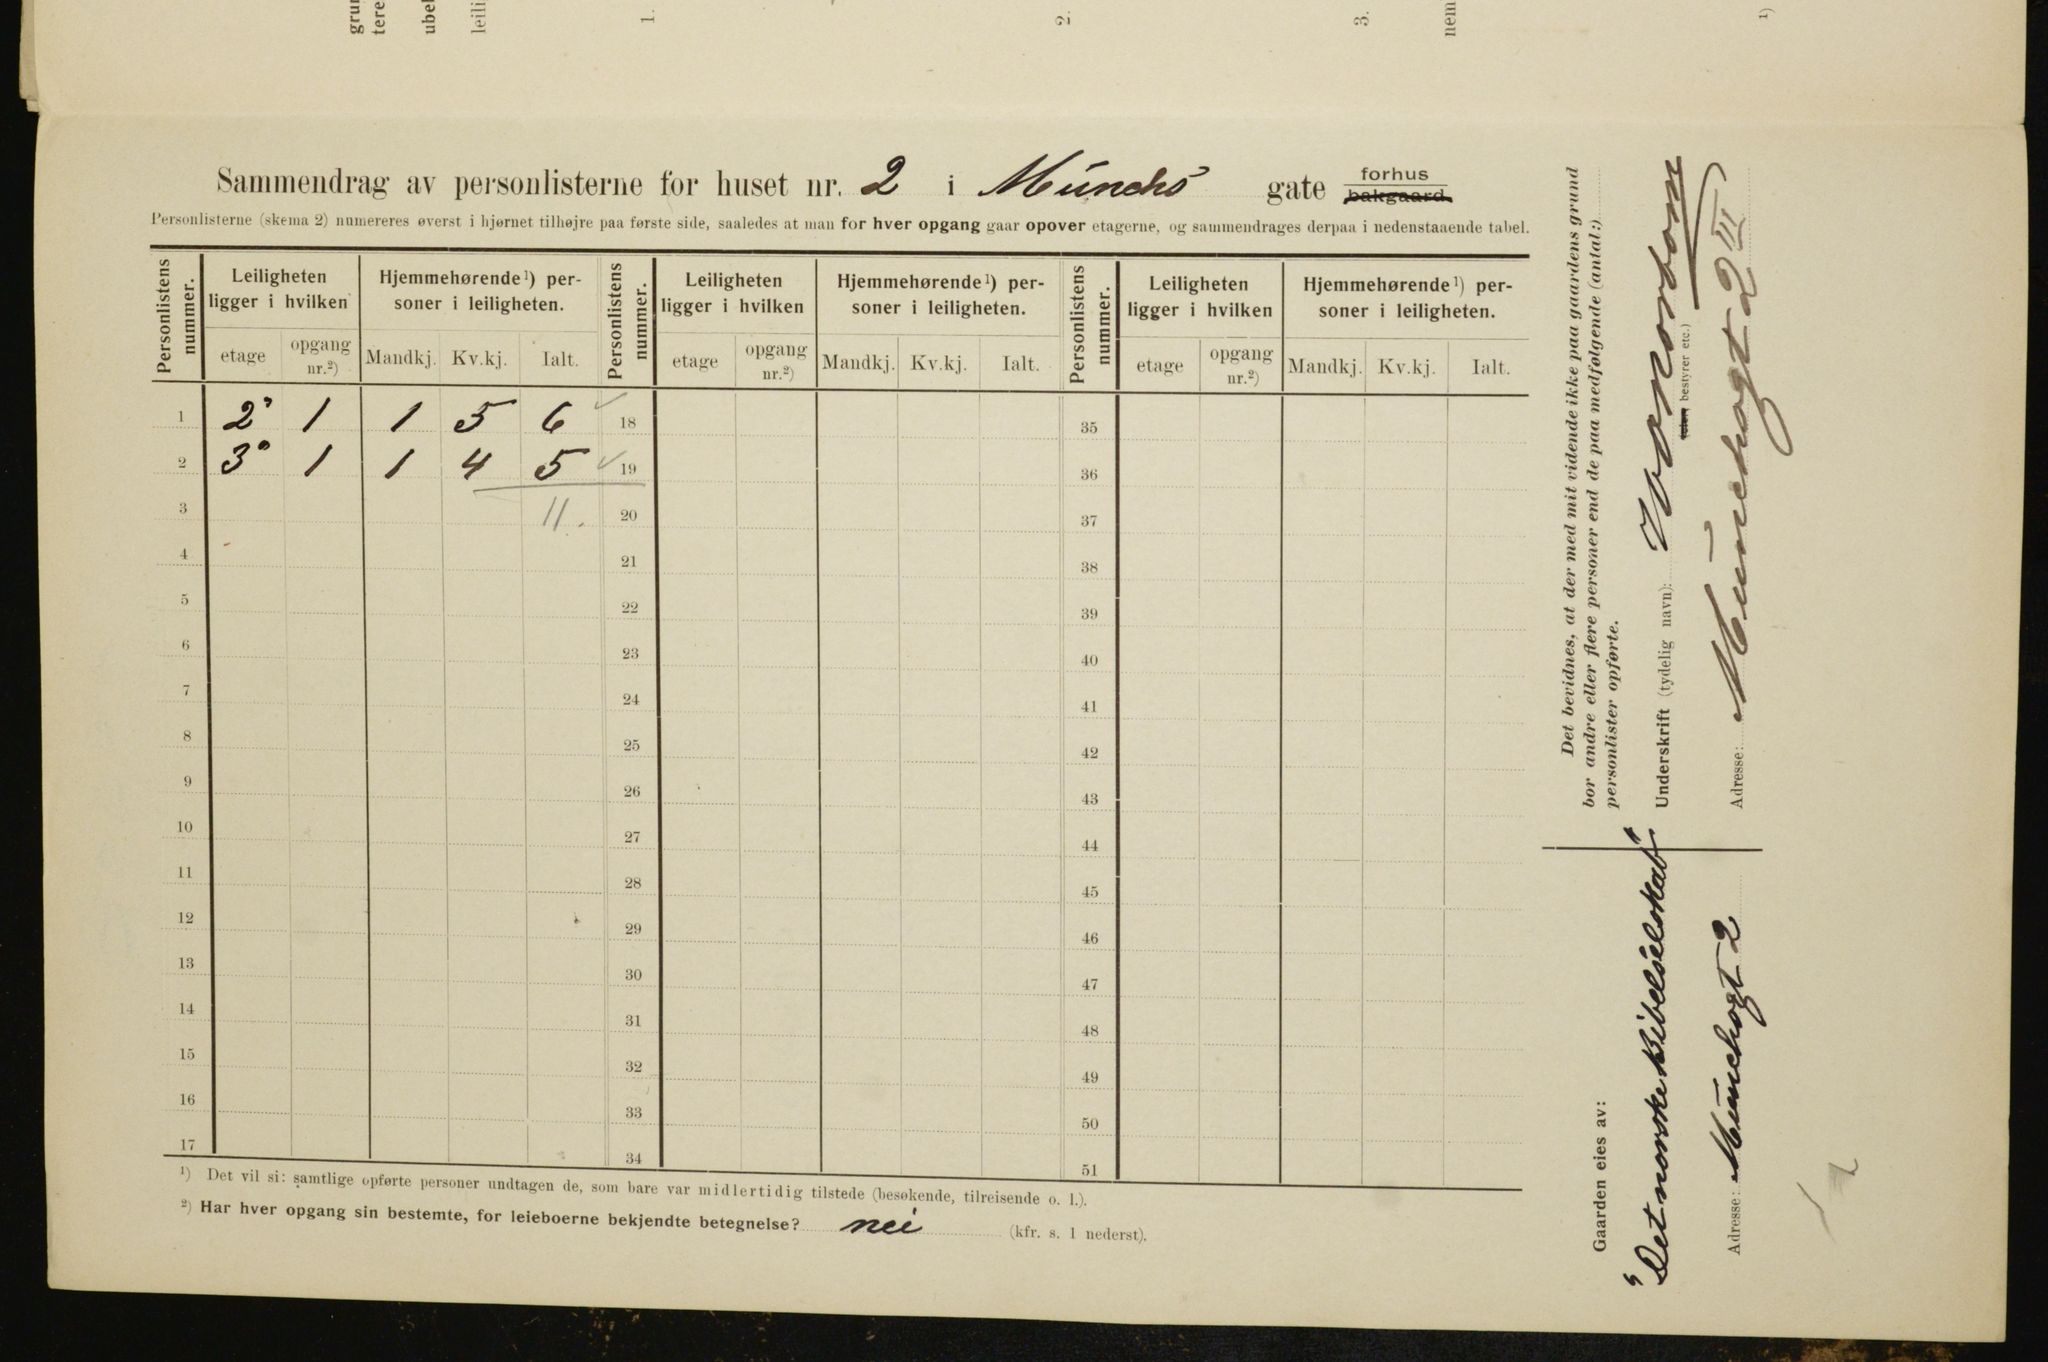 grun
tere
ubel
leili
1.
2.
3.
nem
1)
Sammendrag av personlisterne for huset nr. 2 i Münchs gate forhus bakgaard.
Personlisterne (skema 2) numereres øverst i hjørnet tilhøjre paa første side, saaledes at man for hver opgang gaar opover etagerne, og sammendrages derpaa i nedenstaaende tabel.
Personlistens nummer. Leiligheten ligger i hvilken Hjemmehørende ¹) personer i leiligheten. Personlistens nummer. Leiligheten ligger i hvilken Hjemmehørende ¹) personer i leiligheten. Personlistens nummer. Leiligheten ligger i hvilken Hjemmehørende ¹) personer i leiligheten.
etage opgang nr.²) Mandkj. Kv.kj. Ialt. etage opgang nr.²) Mandkj. Kv.kj. Ialt. etage opgang nr.²) Mandkj. Kv.kj. Ialt.
1 2° 1 1 5 6 ✓ 18 35
2 3° 1 1 4 5 ✓ 19 36
3 11. 20 37
4 21 38
5 22 39
6 23 40
7 24 41
8 25 42
9 26 43
10 27 44
11 28 45
12 29 46
13 30 47
14 31 48
15 32 49
16 33 50
17 34 51
¹) Det vil si: samtlige opførte personer undtagen de, som bare var midlertidig tilstede (besøkende, tilreisende o. l.).
²) Har hver opgang sin bestemte, for leieboerne bekjendte betegnelse? nei (kfr. s. 1 nederst).
Det bevidnes, at der med mit vidende ikke paa gaardens grund
bor andre eller flere personer end de paa medfølgende (antal:)
personlister opførte.
Underskrift (tydelig navn):
bestyrer etc.)
Adresse: Münchsgt 2 III
Gaarden eies av:
"Det norske Bibelselskab"
Adresse: Münchsgt 2